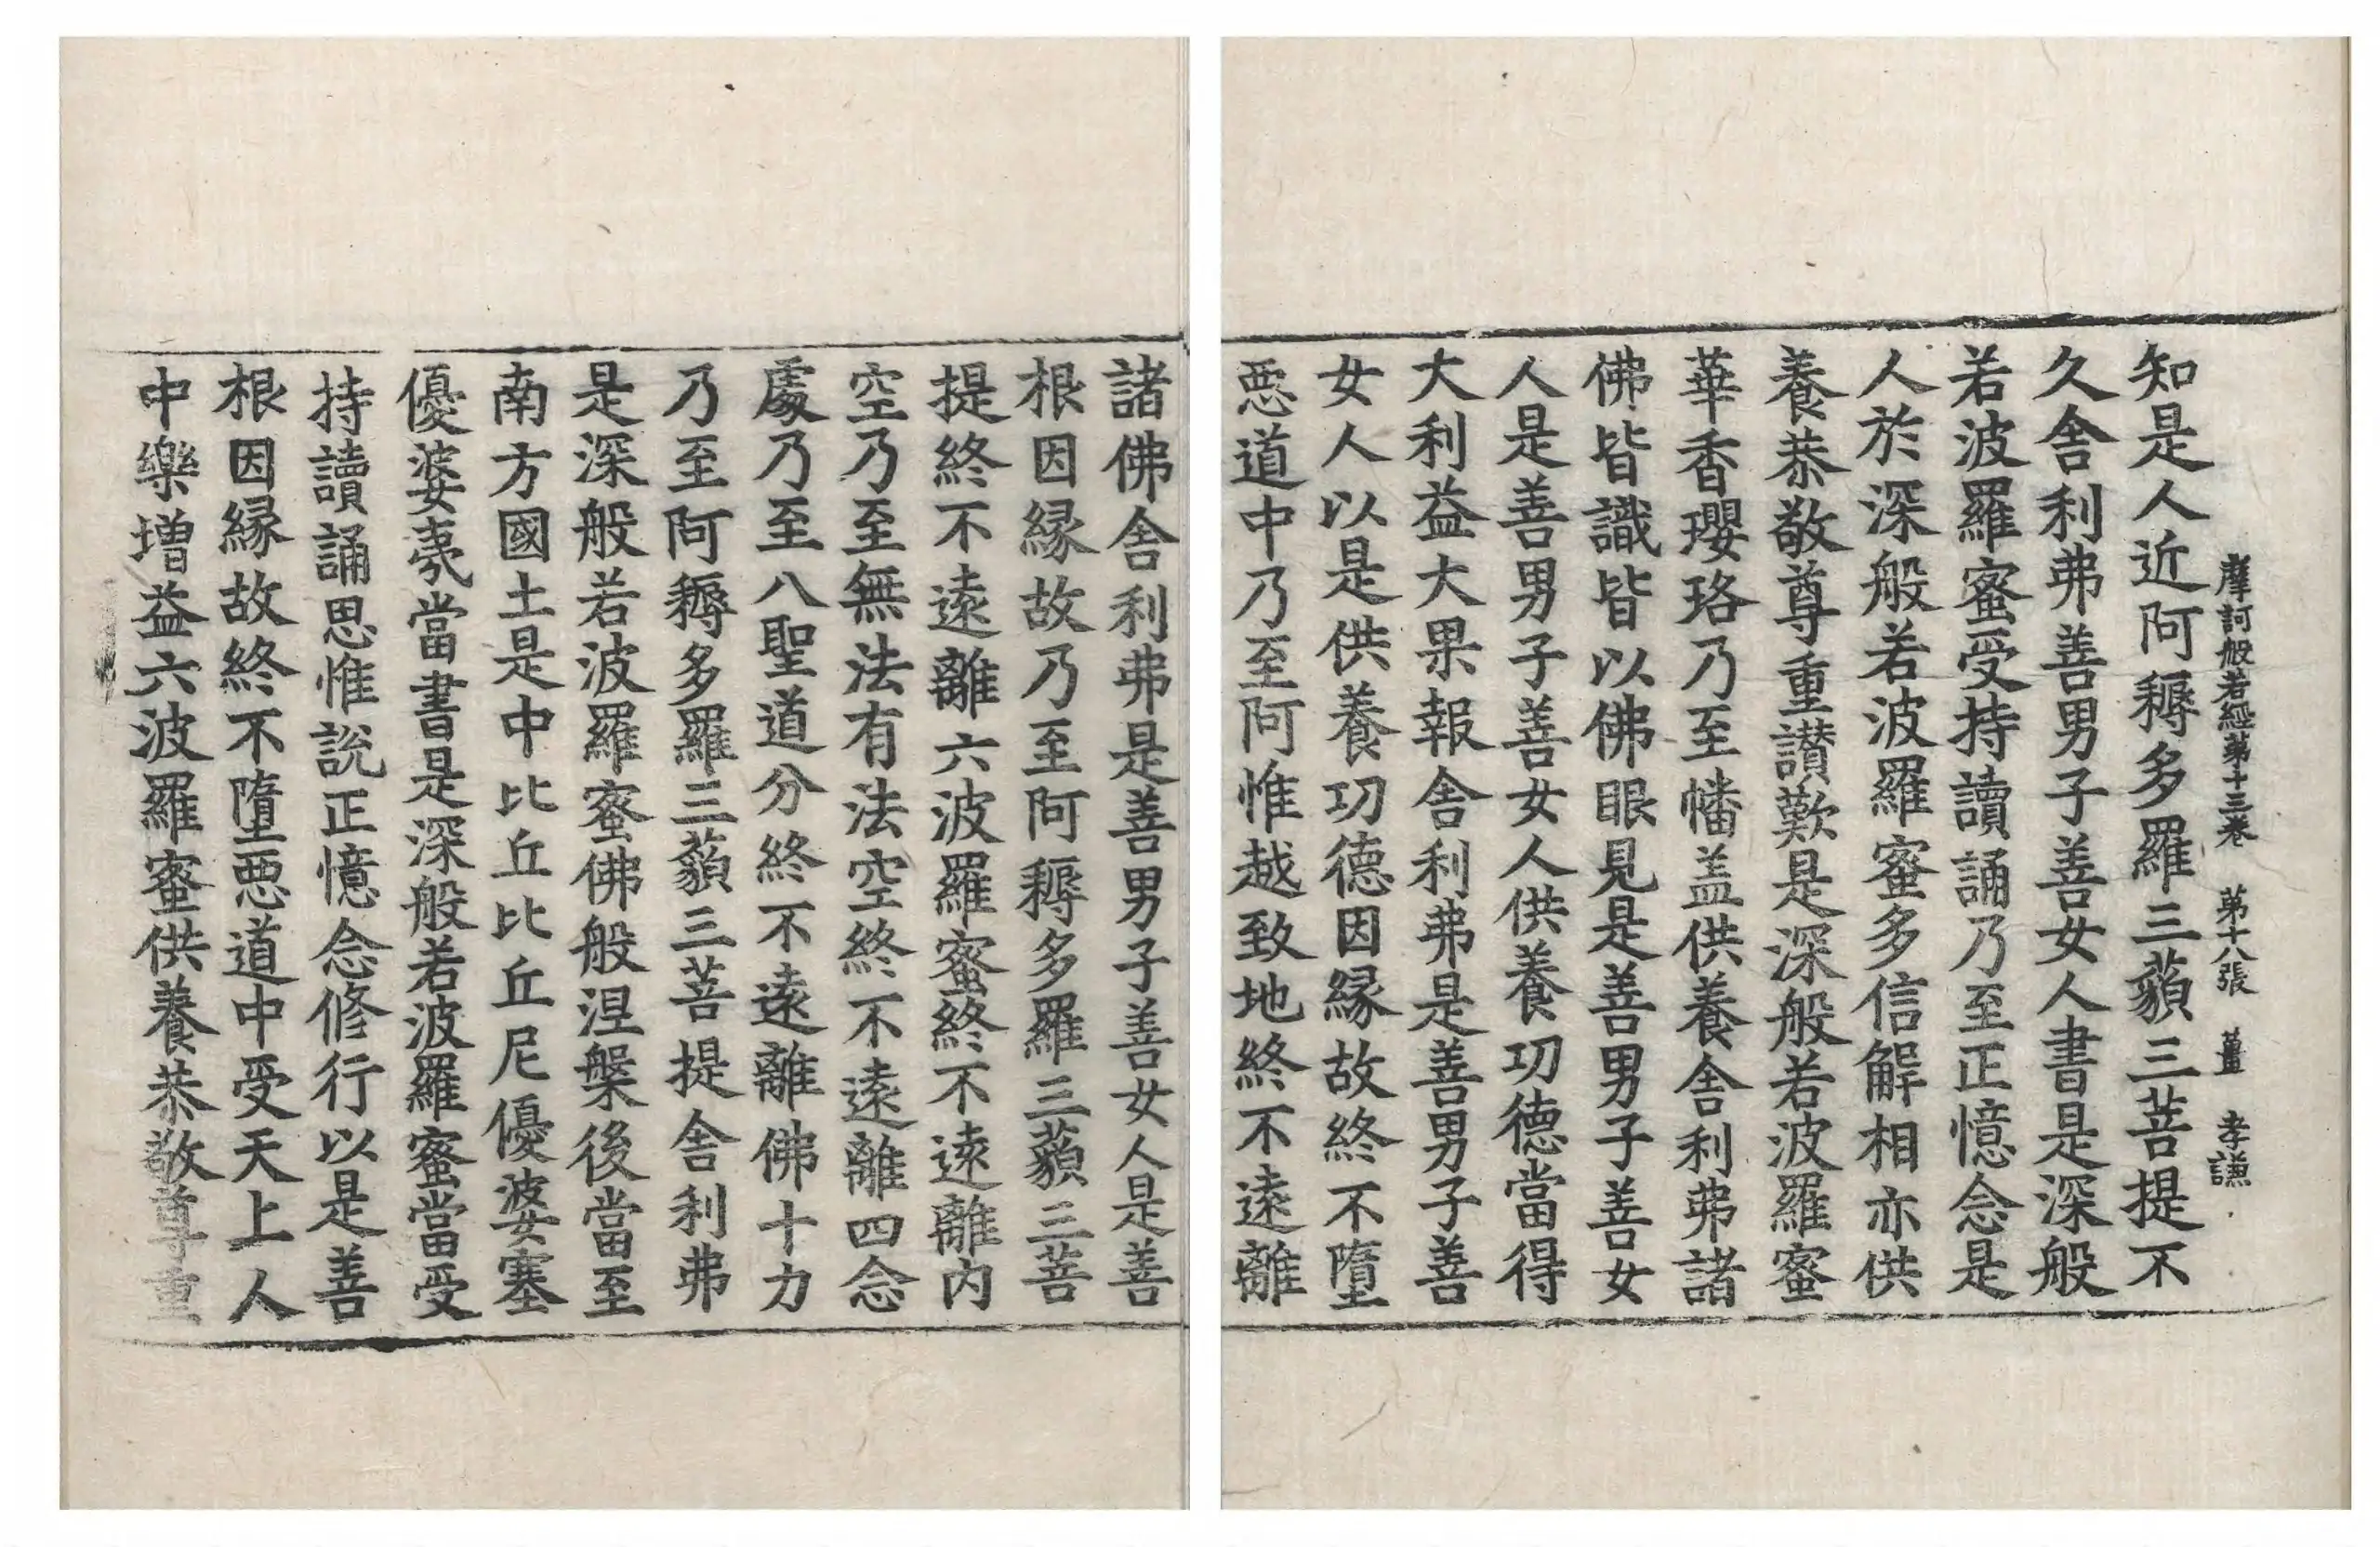 摩訶般若經苐十三卷 苐十八張 薑 孝謙
知是人近阿耨多羅三藐三菩提不
久舍利弗善男子善女人書是深般
若波羅蜜受持讀誦乃至正憶念是
人於深般若波羅蜜多信解相亦供
養恭敬尊重讃歎是深般若波羅蜜
華香瓔珞乃至幡盖供養舍利弗諸
佛皆識皆以佛眼見是善男子善女
人是善男子善女人供養功德當得
大利益大果報舍利弗是善男子善
女人以是供養功德因縁故終不墮
惡道中乃至阿惟越致地終不遠離
諸佛舍利弗是善男子善女人是善
根因縁故乃至阿耨多羅三藐三菩
提終不遠離六波羅蜜終不遠離內
空乃至無法有法空終不遠離四念
處乃至八聖道分終不遠離佛十力
乃至阿耨多羅三藐三菩提舍利弗
是深般若波羅蜜佛般涅槃後當至
南方國土是中比丘比丘尼優婆塞
優婆夷當書是深般若波羅蜜當受
持讀誦思惟說正憶念修行以是善
根因縁故終不墮惡道中受天上人
中樂增益六波羅蜜供養恭敬尊重